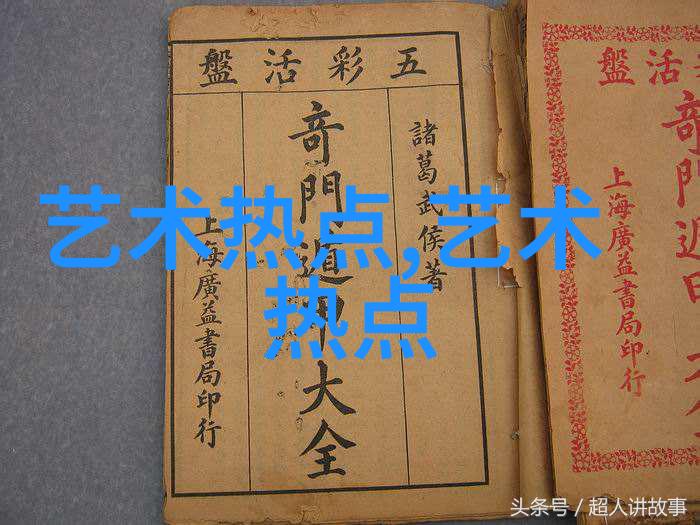 五彩活盤
諸葛武侯著
竒門遁甲大全
上海廣益書局印行
艺术热点,艺术
热点
活盤
上海廣益書局印行
头条号 / 超人讲故事